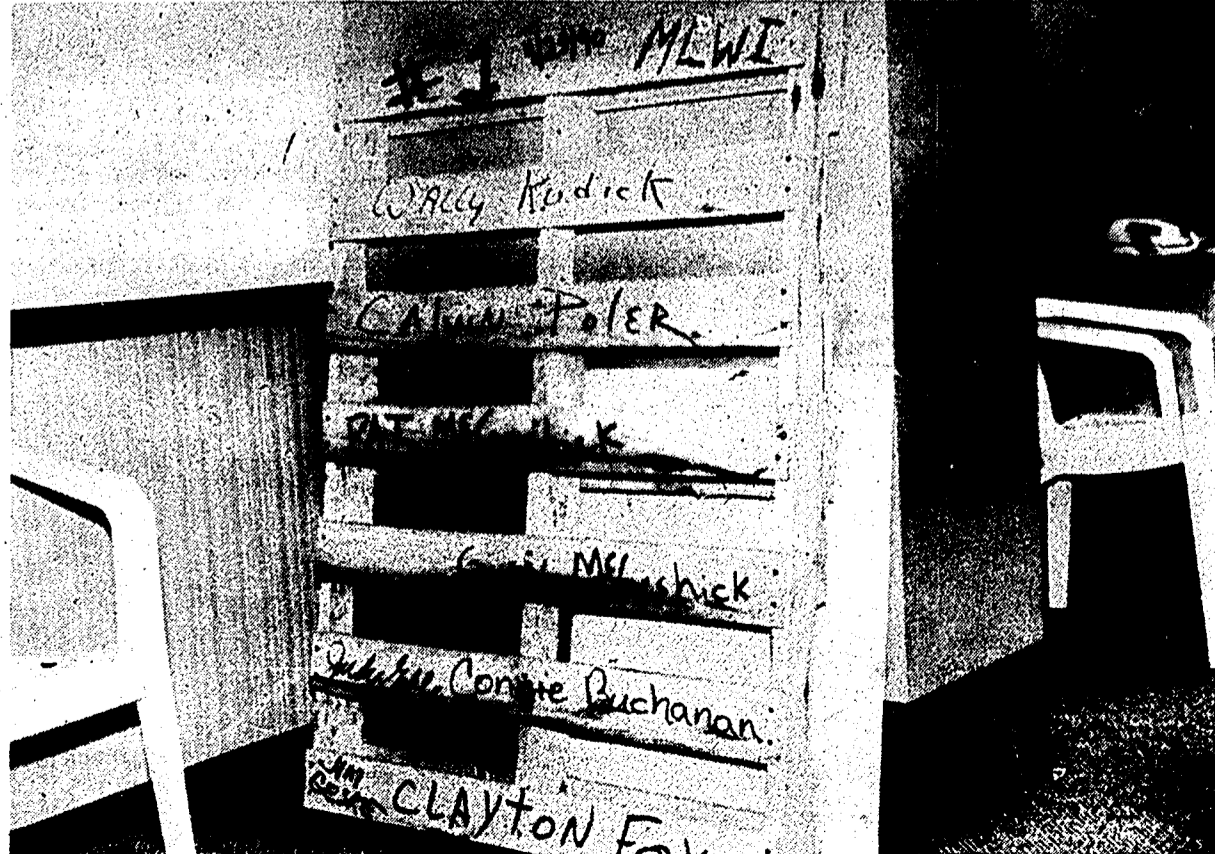 #1 MLWI
WALLY KudicK
CALVIN POLER
PAT
McGeshick
Connie Buchanan
CLAYTON FOX